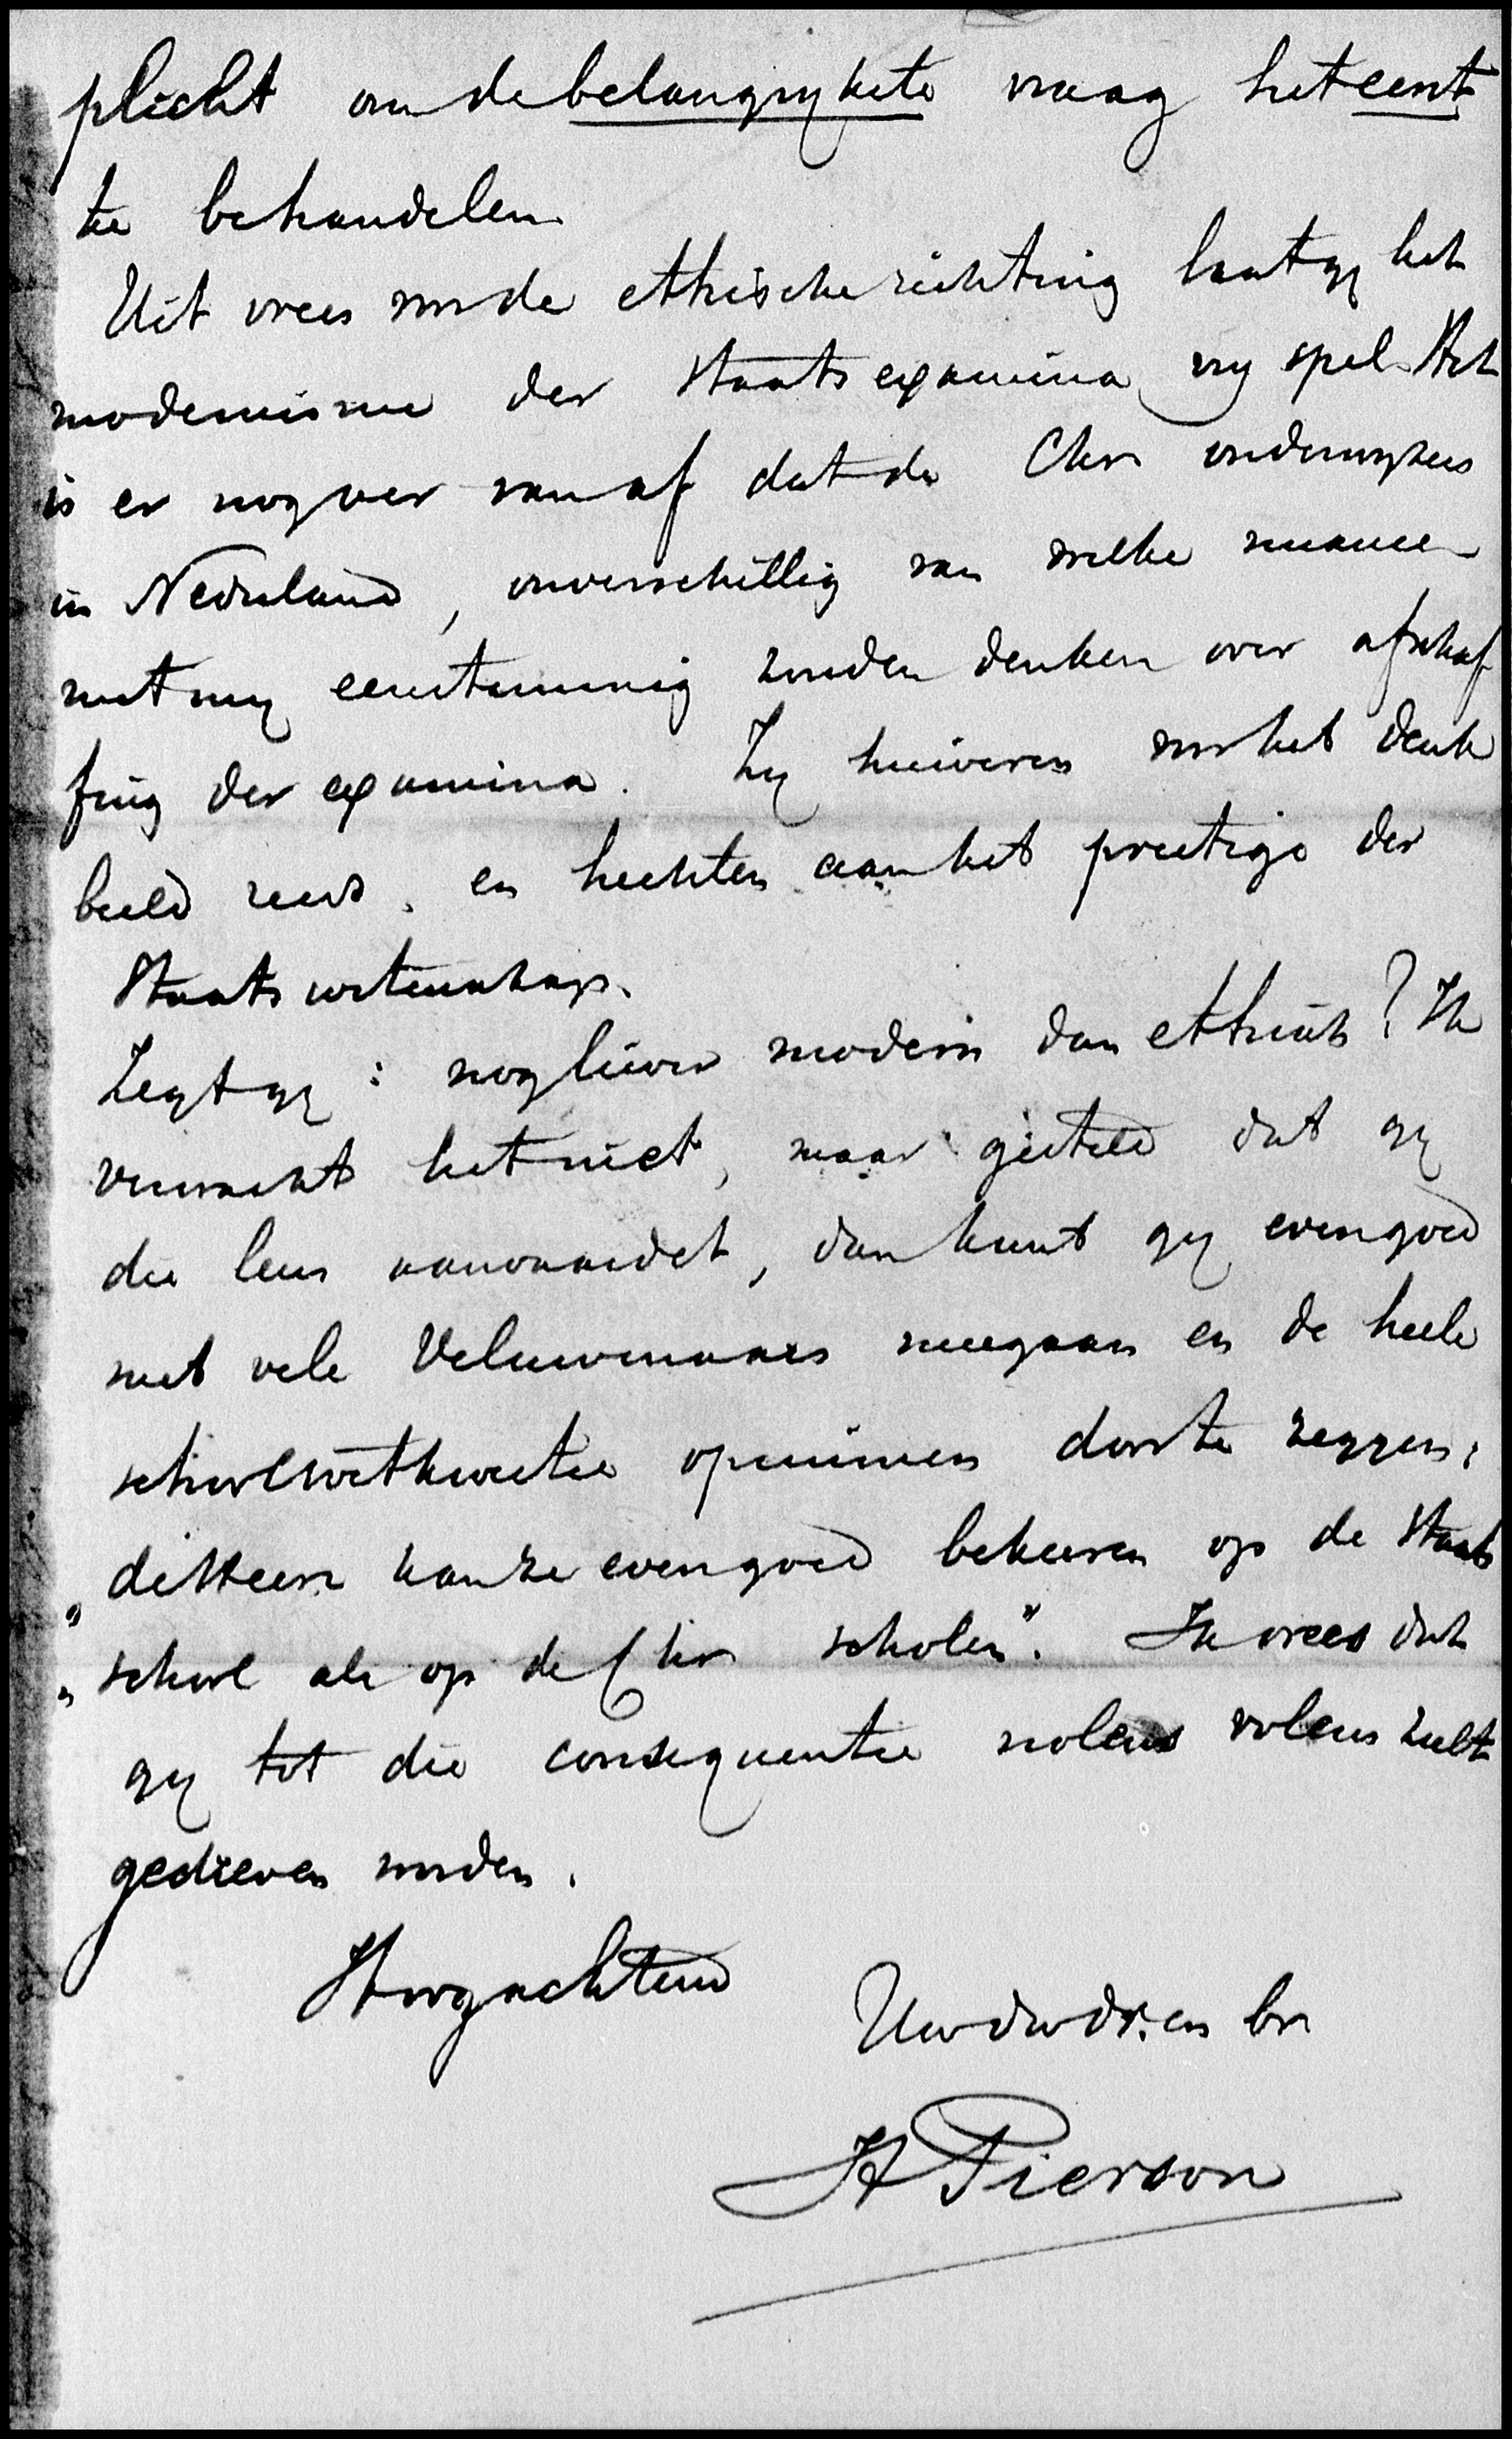 plicht om de belangrykste vraag het eerst
te behandelen
Uit vrees voor de ethische richting laat gy het
modernisme der Staats examina vry spel. Het
is er nog ver van af dat de Chr onderwyzers
in Nederland, onverschillig van welke nuance
met my eenstemmig zouden denken over afschaf
fing der examina. Zy huiveren voor het denk
beeld reeds, en hechten aan het prestige der
Staats wetenschap.
Zegt gy: nog liever modern dan ethisch? Ik
verwacht het niet, maar gesteld dat gy
die leus aanvaardet, dan kunt gy evengoed
met vele Veluwenaars meegaan en de heele
schoolwetkwestie opruimen door te zeggen:
„de Heere kan ze evengoed bekeeren op de Staats
„school als op de Chr scholen". Ik vrees dat
gy tot die consequentie nolens volens zult
gedreven worden.
Hoogachtend
Uw dw dr. en br
H Pierson